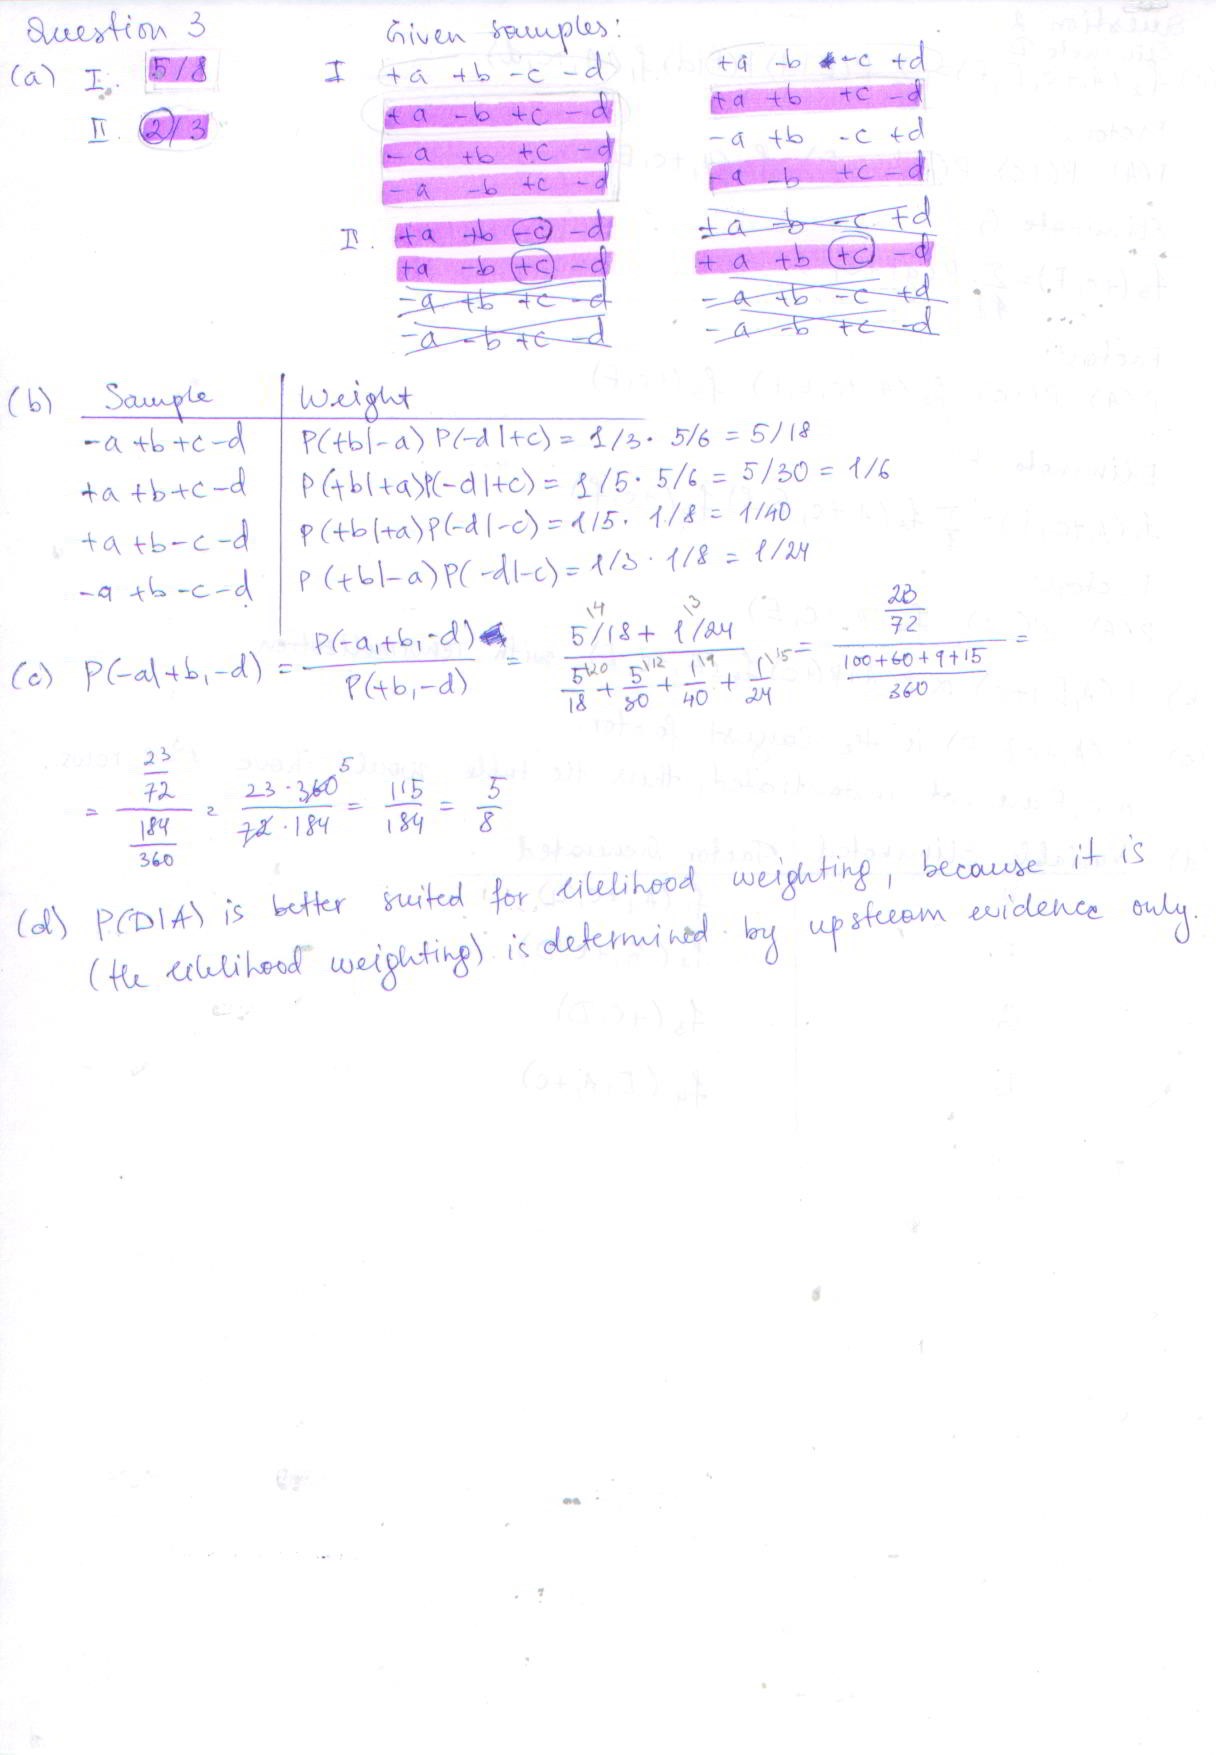 Question 3
Given samples:
(a) I. 5/8
II. 2/3
I +a +b -c -d
+a -b +c -d
-a +b +c -d
-a -b +c -d
+a -b -c +d
+a +b +c -d
-a +b -c +d
-a -b +c -d
II. +a +b -c -d
+a -b +c -d
-a +b +c -d
-a -b +c -d
+a -b -c +d
+a +b +c -d
-a +b -c +d
-a -b +c -d
(b) Sample | Weight
-a +b +c -d | P(+b|-a) P(-d|+c) = 1/3 · 5/6 = 5/18
+a +b +c -d | P(+b|+a)P(-d|+c) = 1/5 · 5/6 = 5/30 = 1/6
+a +b -c -d | P(+b|+a)P(-d|-c) = 1/5 · 1/8 = 1/40
-a +b -c -d | P(+b|-a)P(-d|-c) = 1/3 · 1/8 = 1/24
(c) P(-a|+b,-d) = P(-a,+b,-d) / P(+b,-d) = (5/18 \4 + 1/24 \3) / (5/18 \20 + 5/30 \12 + 1/40 \9 + 1/24 \15) = (23/72) / ((100+60+9+15)/360) =
= (23/72) / (184/360) = (23 · 360 5) / (72 · 184) = 115/184 = 5/8
(d) P(D|A) is better suited for likelihood weighting, because it is
(the likelihood weighting) is determined by upstream evidence only.